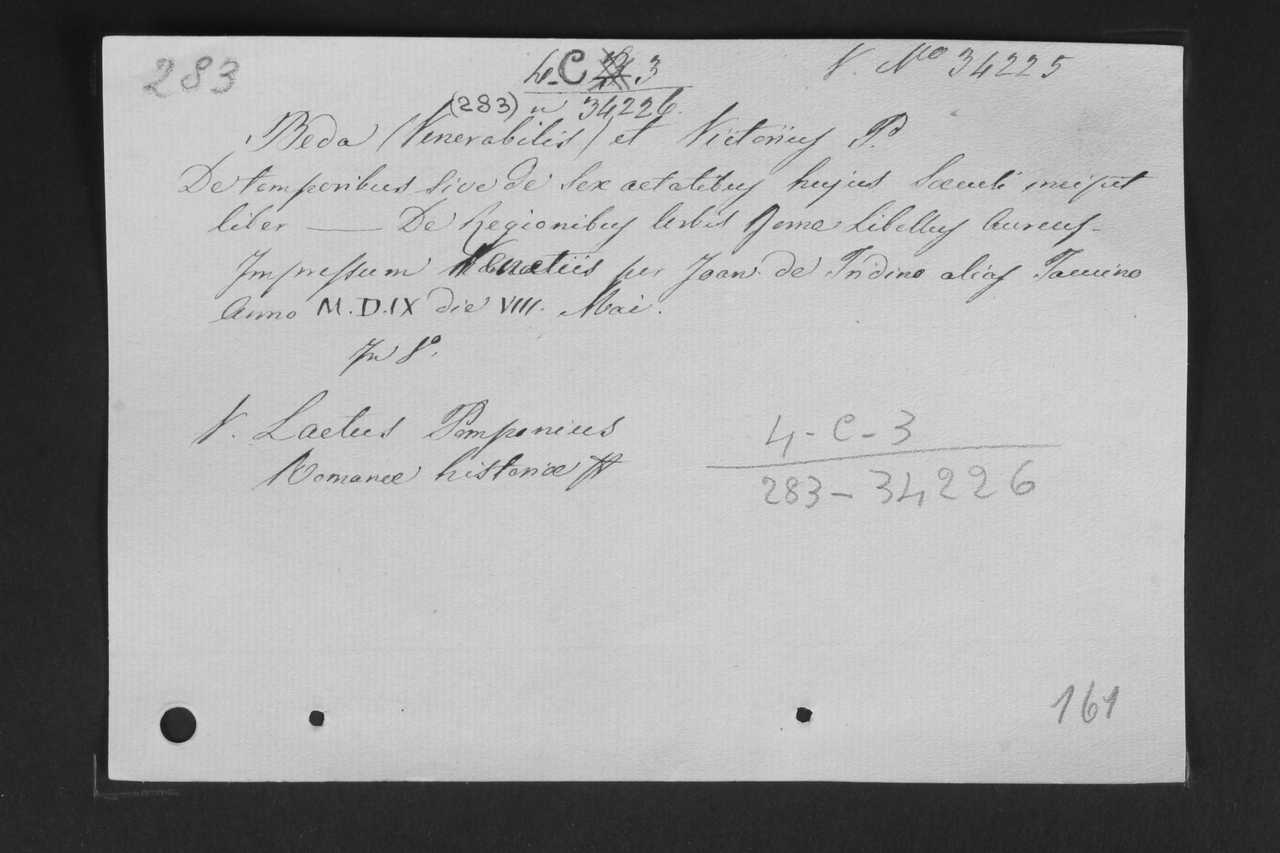 283
4-C 3
V. Nº 34225
(283) n 34226.
Beda (Venerabilis) et Victorius P.
De temporibus sive de sex aetatibus hujus Saeculi incipit
liber —— De Regionibus Urbis Romae libellus Aureus-
Impressum Venetiis per Joan. de Tridino alias Tacuino
Anno M.D.IX die VIII. Mai.
In 8º.
V. Laetus Pomponius
Romanae historiae
4-C-3
283-34226
161